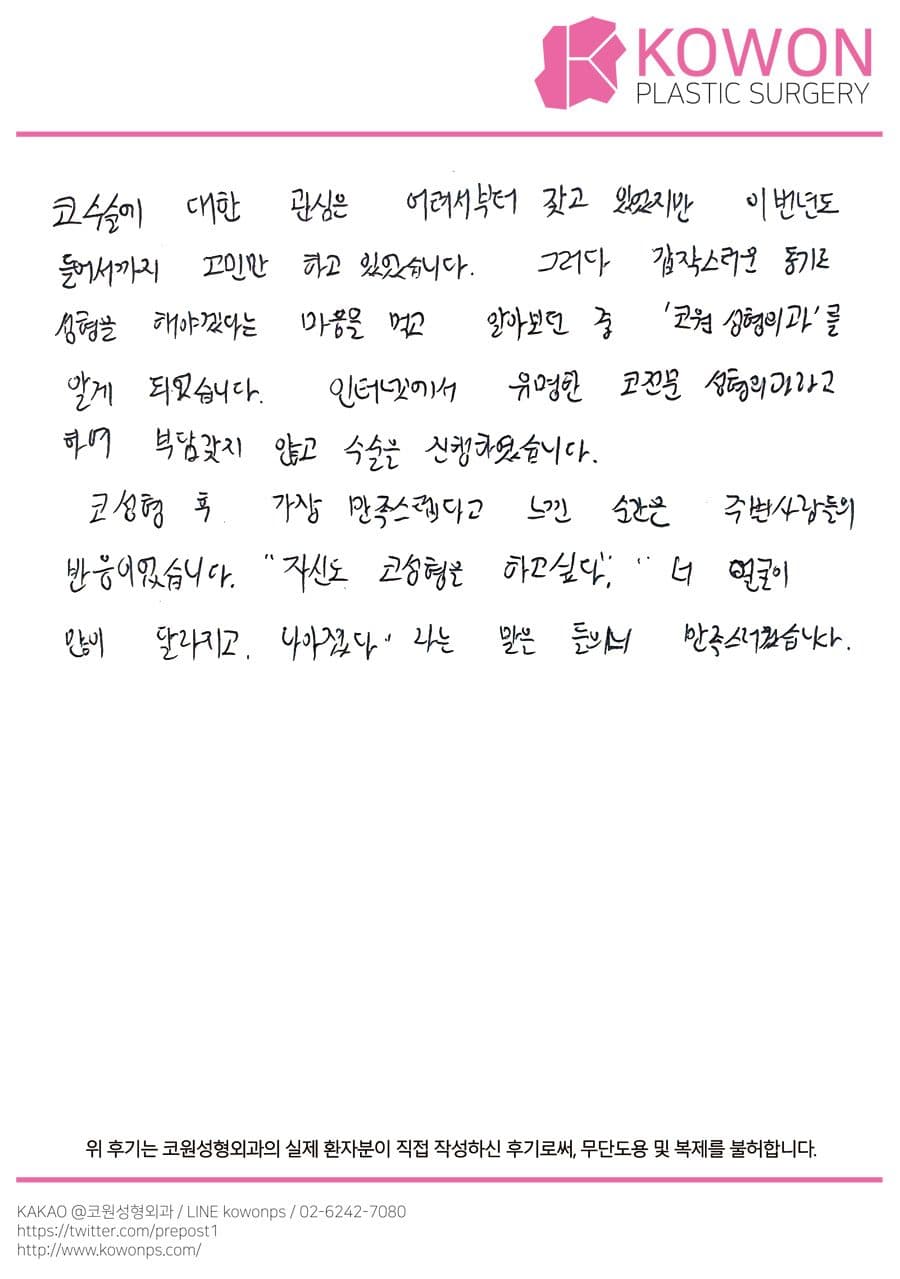 KOWON
PLASTIC SURGERY
코수술에 대한 관심은 어려서부터 갖고 있었지만 이번년도
들어서까지 고민만 하고 있었습니다. 그러다 갑작스러운 동기로
성형을 해야겠다는 마음을 먹고 알아보던 중 '코원 성형외과'를
알게 되었습니다. 인터넷에서 유명한 코전문 성형외과라고
하여 부담갖지 않고 수술을 진행하였습니다.
코성형 후 가장 만족스렙다고 느낀 순간은 주변사람들의
반응이었습니다. "자신도 코성형을 하고싶다", "너 얼굴이
많이 달라지고, 나아졌다" 라는 말은 만족스러웠습니다.
위 후기는 코원성형외과의 실제 환자분이 직접 작성하신 후기로써, 무단도용 및 복제를 불허합니다.
KAKAO @코원성형외과 / LINE kowonps / 02-6242-7080
https://twitter.com/prepost1
http://www.kowonps.com/